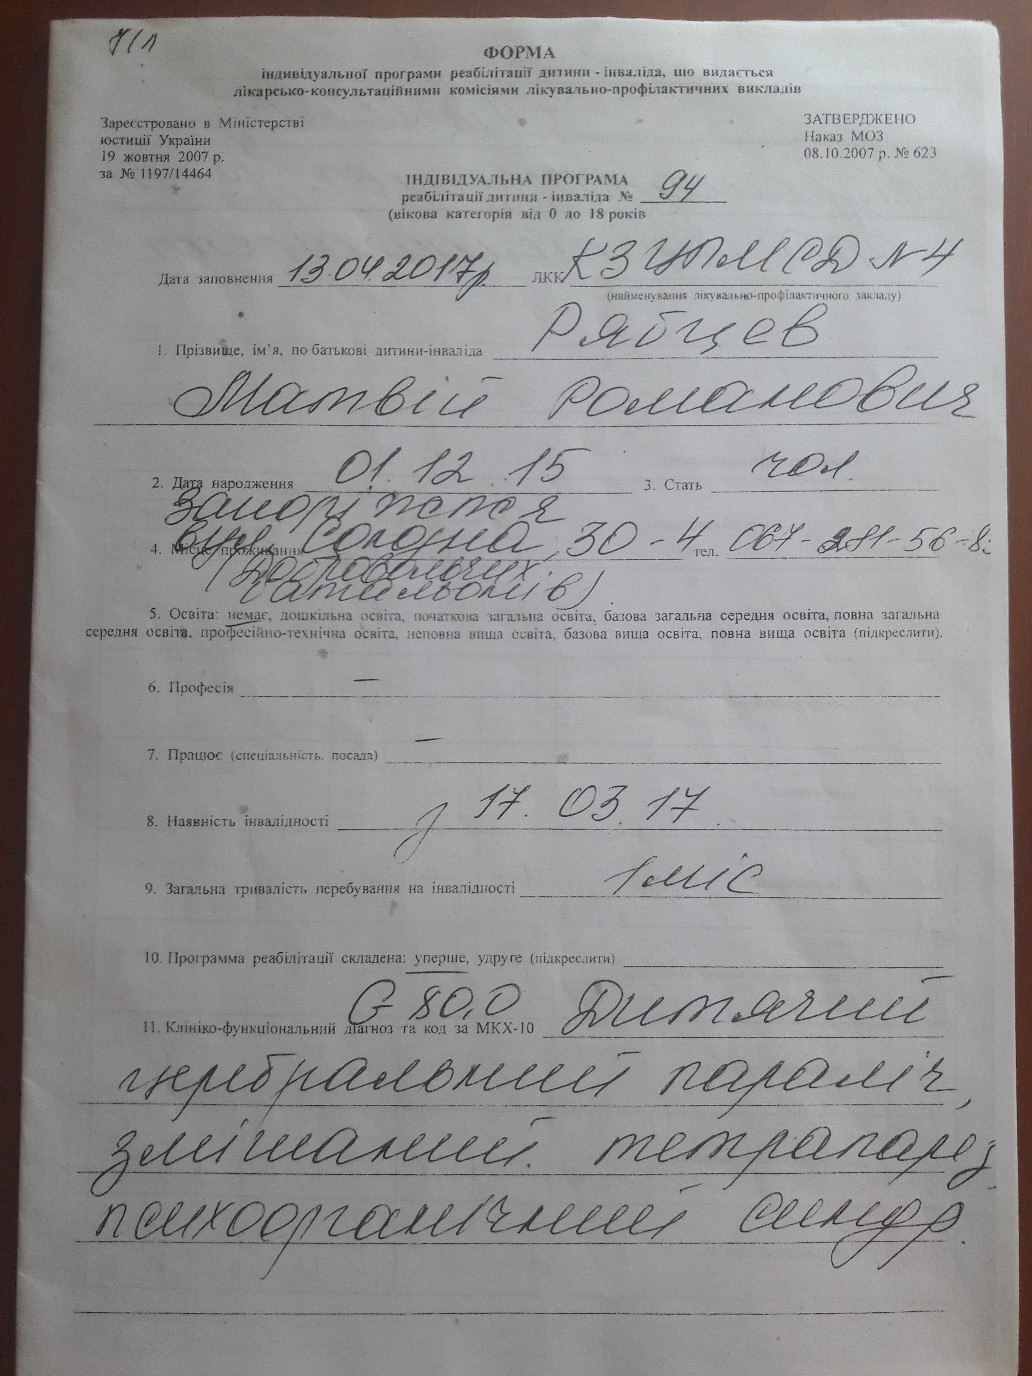 ФОРМА
індивідуальної програми реабілітації дитини - інваліда, що видається
лікарсько-консультаційними комісіями лікувально-профілактичних викладів
Зареєстровано в Міністерстві
юстиції України
19 жовтня 2007 р.
за № 1197/14464
ЗАТВЕРДЖЕНО
Наказ МОЗ
08.10.2007 р. № 623
ІНДІВІДУАЛЬНА ПРОГРАМА
реабілітації дитини - інваліда № 94
(вікова категорія від 0 до 18 років
Дата заповнення 13.04.2017р ЛКК КЗ ЦПМСД №4
(найменування лікувально-профілактичного закладу)
1. Прізвище, ім'я, по батькові дитини-інваліда Рябцев
Матвій Романович
2. Дата народження 01.12.15 3. Стать чол.
Запоріжжя
4. Місце проживання вул. 30-4 тел. 067-281-56-8
(Добровольчих
батальонів)
5. Освіта: немає, дошкільна освіта, початкова загальна освіта, базова загальна середня освіта, повна загальна
середня освіта, професійно-технічна освіта, неповна вища освіта, базова вища освіта, повна вища освіта (підкреслити).
6. Професія —
7. Працює (спеціальність, посада) —
8. Наявність інвалідності з 17.03.17
9. Загальна тривалість перебування на інвалідності 1 міс
10. Программа реабілітації складена: уперше, удруге (підкреслити)
11. Клініко-функціональний діагноз та код за МКХ-10 G 80,0 Дитячий
церебральний параліч,
змішаний тетрапарез
психоорганічний синдр.